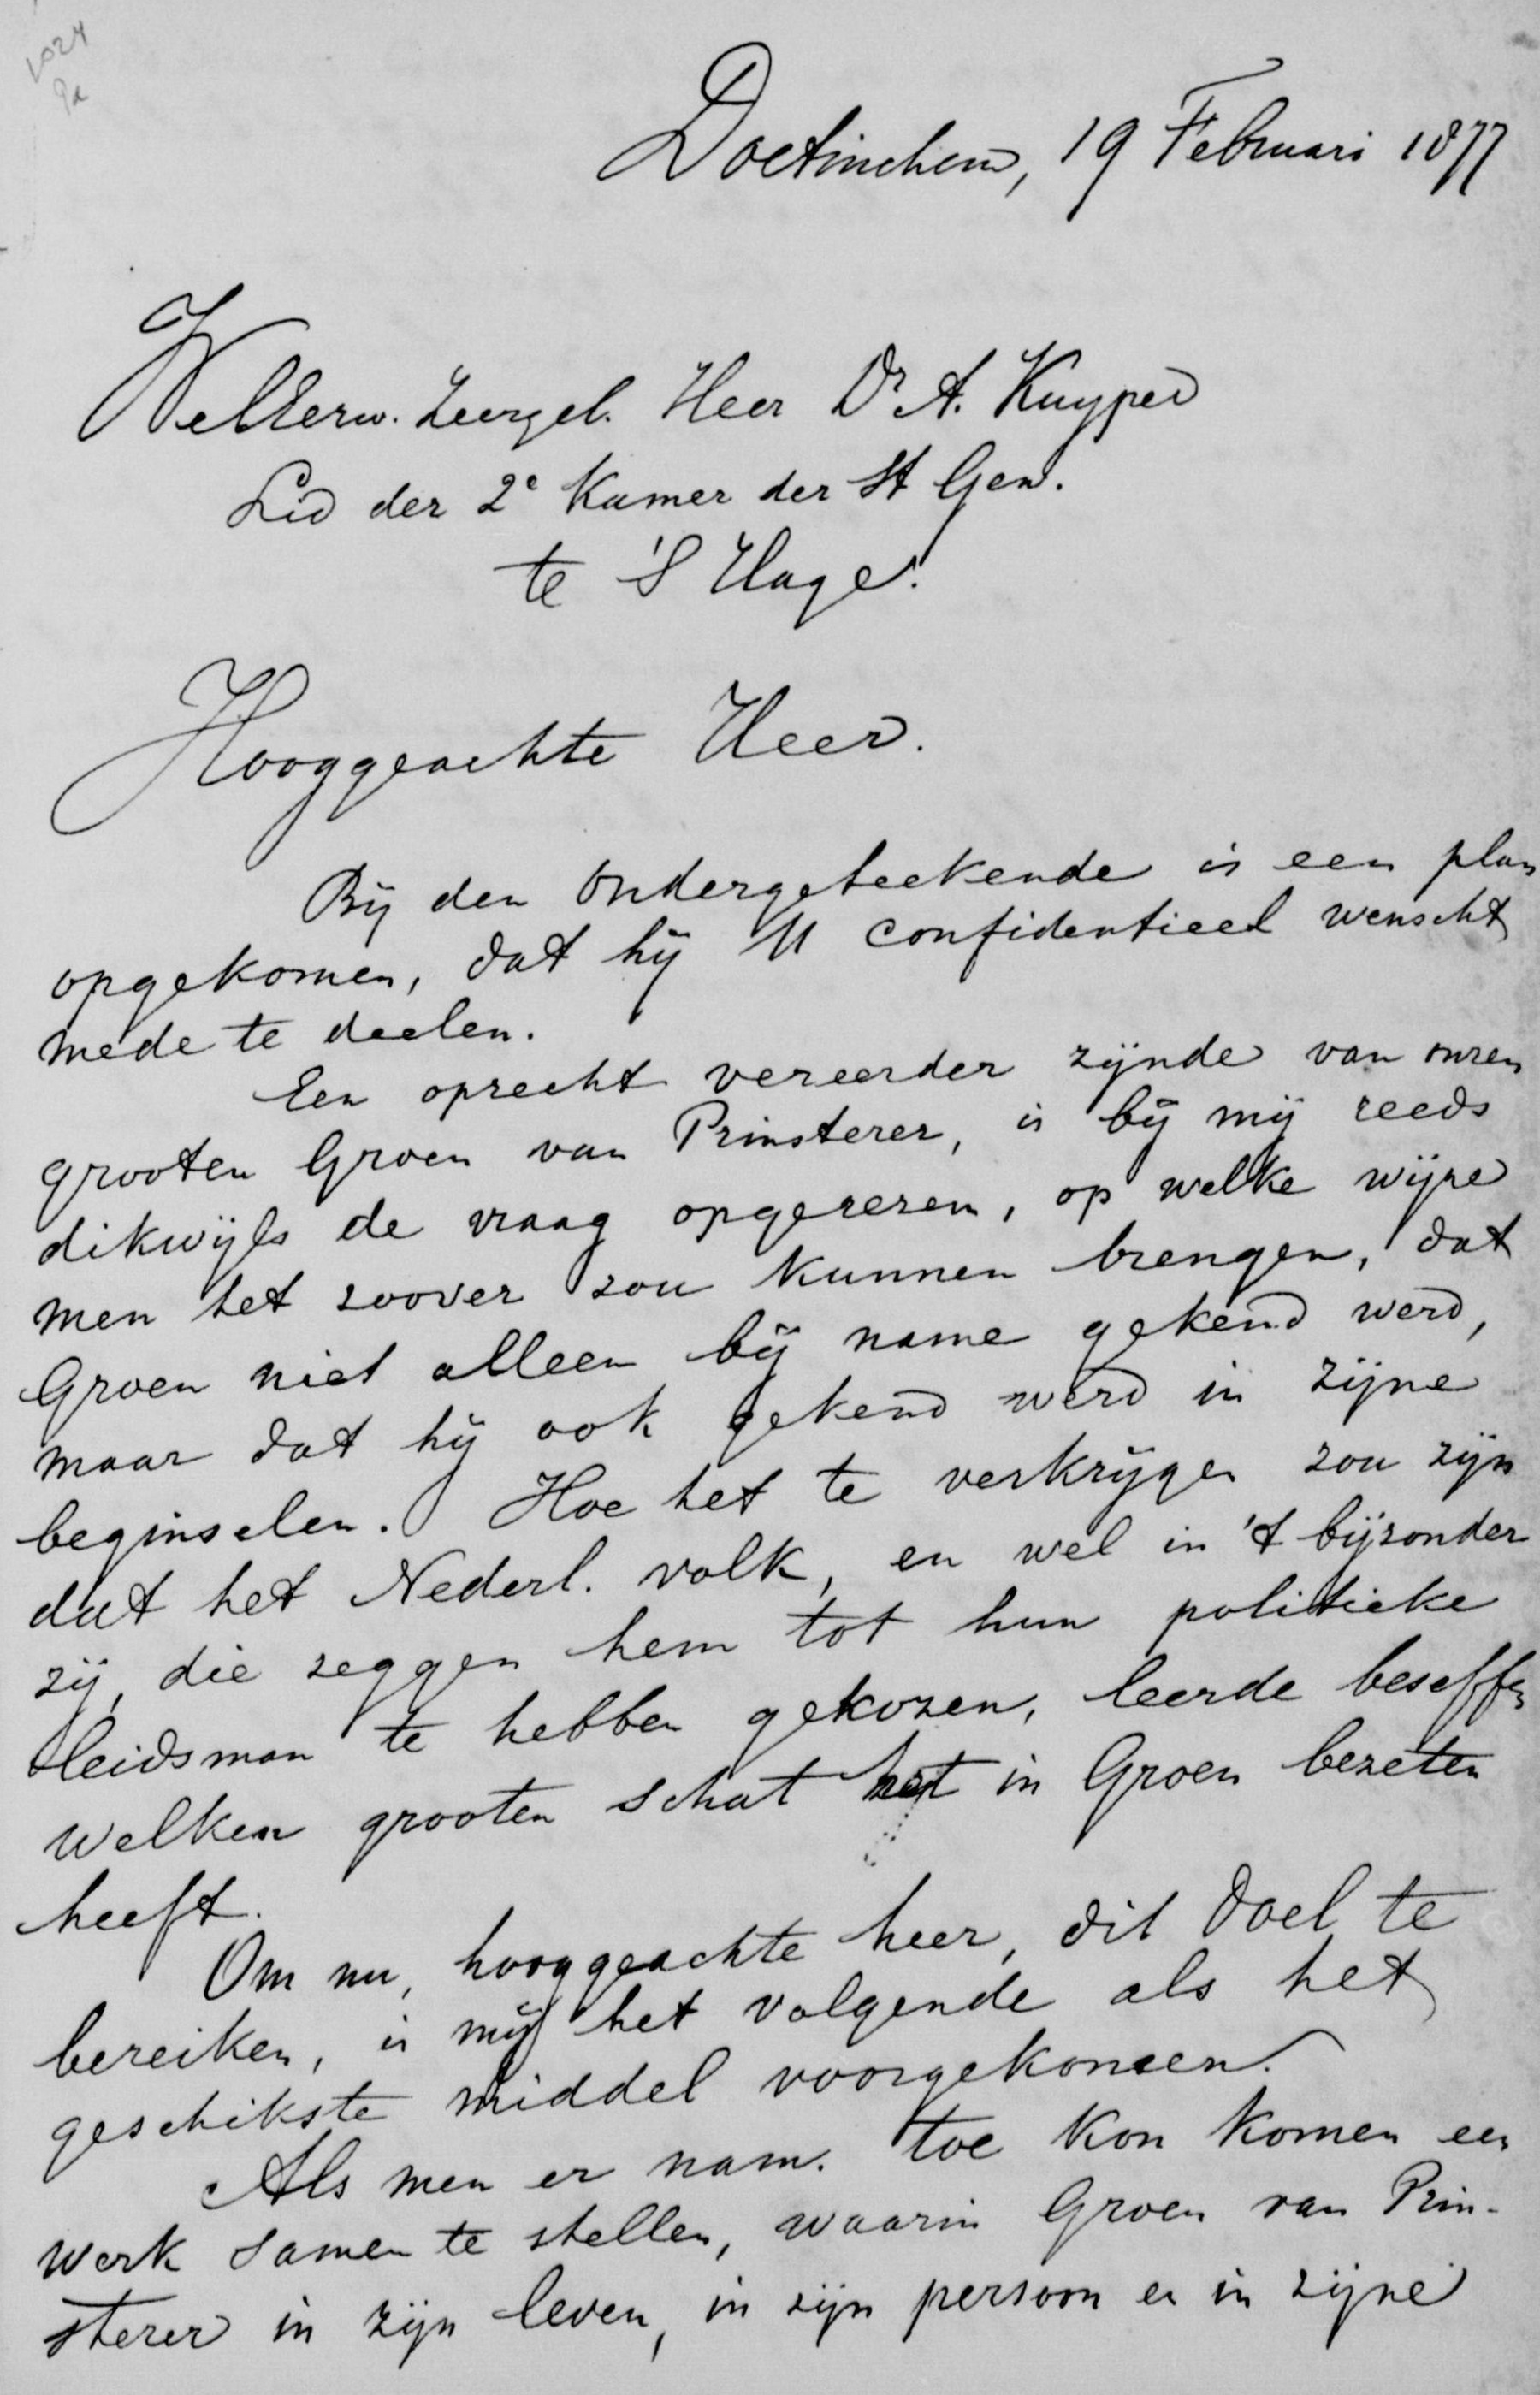 1024
9a
Doetinchem, 19 Februari 1877
WelEerw. Zeergel. Heer Dr A. Kuyper
Lid der 2e Kamer der St Gen.
te 's Hage.
Hooggeachte Heer.
Bij den Ondergeteekende is een plan
opgekomen, dat hij U confidentieel wenscht
mede te deelen.
Een oprecht vereerder zijnde van onzen
grooten Groen van Prinsterer, is bij mij reeds
dikwijls de vraag opgerezen, op welke wijze
men het zoover zou kunnen brengen, dat
Groen niet alleen bij name gekend werd,
maar dat hij ook gekend werd in zijne
beginselen. Hoe het te verkrijgen zou zijn
dat het Nederl. volk, en wel in 't bijzonder
zij, die zeggen hem tot hun politieke
leidsman te hebben gekozen, leerde beseffen
welken grooten schat het in Groen bezeten
heeft.
Om nu, hooggeachte heer, dit doel te
bereiken, is mij het volgende als het
geschikste middel voorgekomen.
Als men er nam. toe kon komen een
werk samen te stellen, waarin Groen van Prin-
sterer in zijn leven, in zijn persoon en in zijne